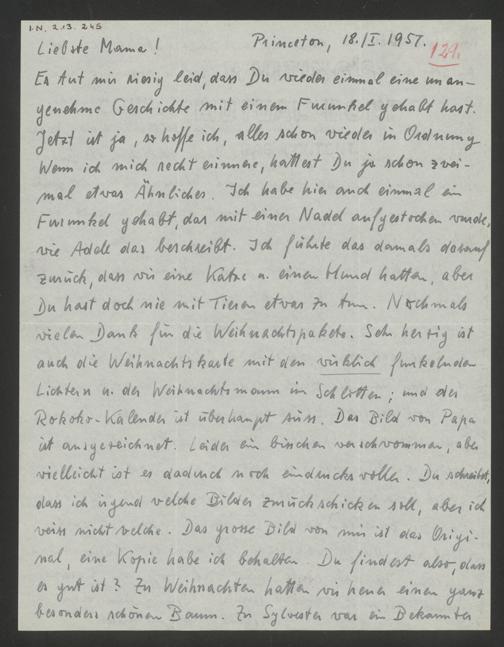 I.N. 213.245
Liebste Mama!
Princeton, 18./I. 1957.
129.
Es tut mir riesig leid, dass Du wieder einmal eine unan-
genehme Geschichte mit einem Furunkel gehabt hast.
Jetzt ist ja, so hoffe ich, alles schon wieder in Ordnung
Wenn ich mich recht erinnere, hattest Du ja schon zwei-
mal etwas Ähnliches. Ich habe hier auch einmal ein
Furunkel gehabt, das mit einer Nadel aufgestochen wurde,
wie Adele das beschreibt. Ich führte das damals darauf
zurück, dass wir eine Katze u. einen Hund hatten, aber
Du hast doch nie mit Tieren etwas zu tun. Nochmals
vielen Dank für die Weihnachtspakete. Sehr herzig ist
auch die Weihnachtskarte mit den wirklich funkelnden
Lichtern u. der Weihnachtsmann im Schlitten; und der
Rokoko-Kalender ist überhaupt süss. Das Bild von Papa
ist ausgezeichnet. Leider ein bischen verschwommen, aber
vielleicht ist es dadurch noch eindrucksvoller. Du schreibst,
dass ich irgend welche Bilder zurückschicken soll, aber ich
weiss nicht welche. Das grosse Bild von mir ist das Origi-
nal, eine Kopie habe ich behalten. Du findest also, dass
es gut ist? Zu Weihnachten hatten wir heuer einen ganz
besonders schönen Baum. Zu Sylvester war ein Bekannter